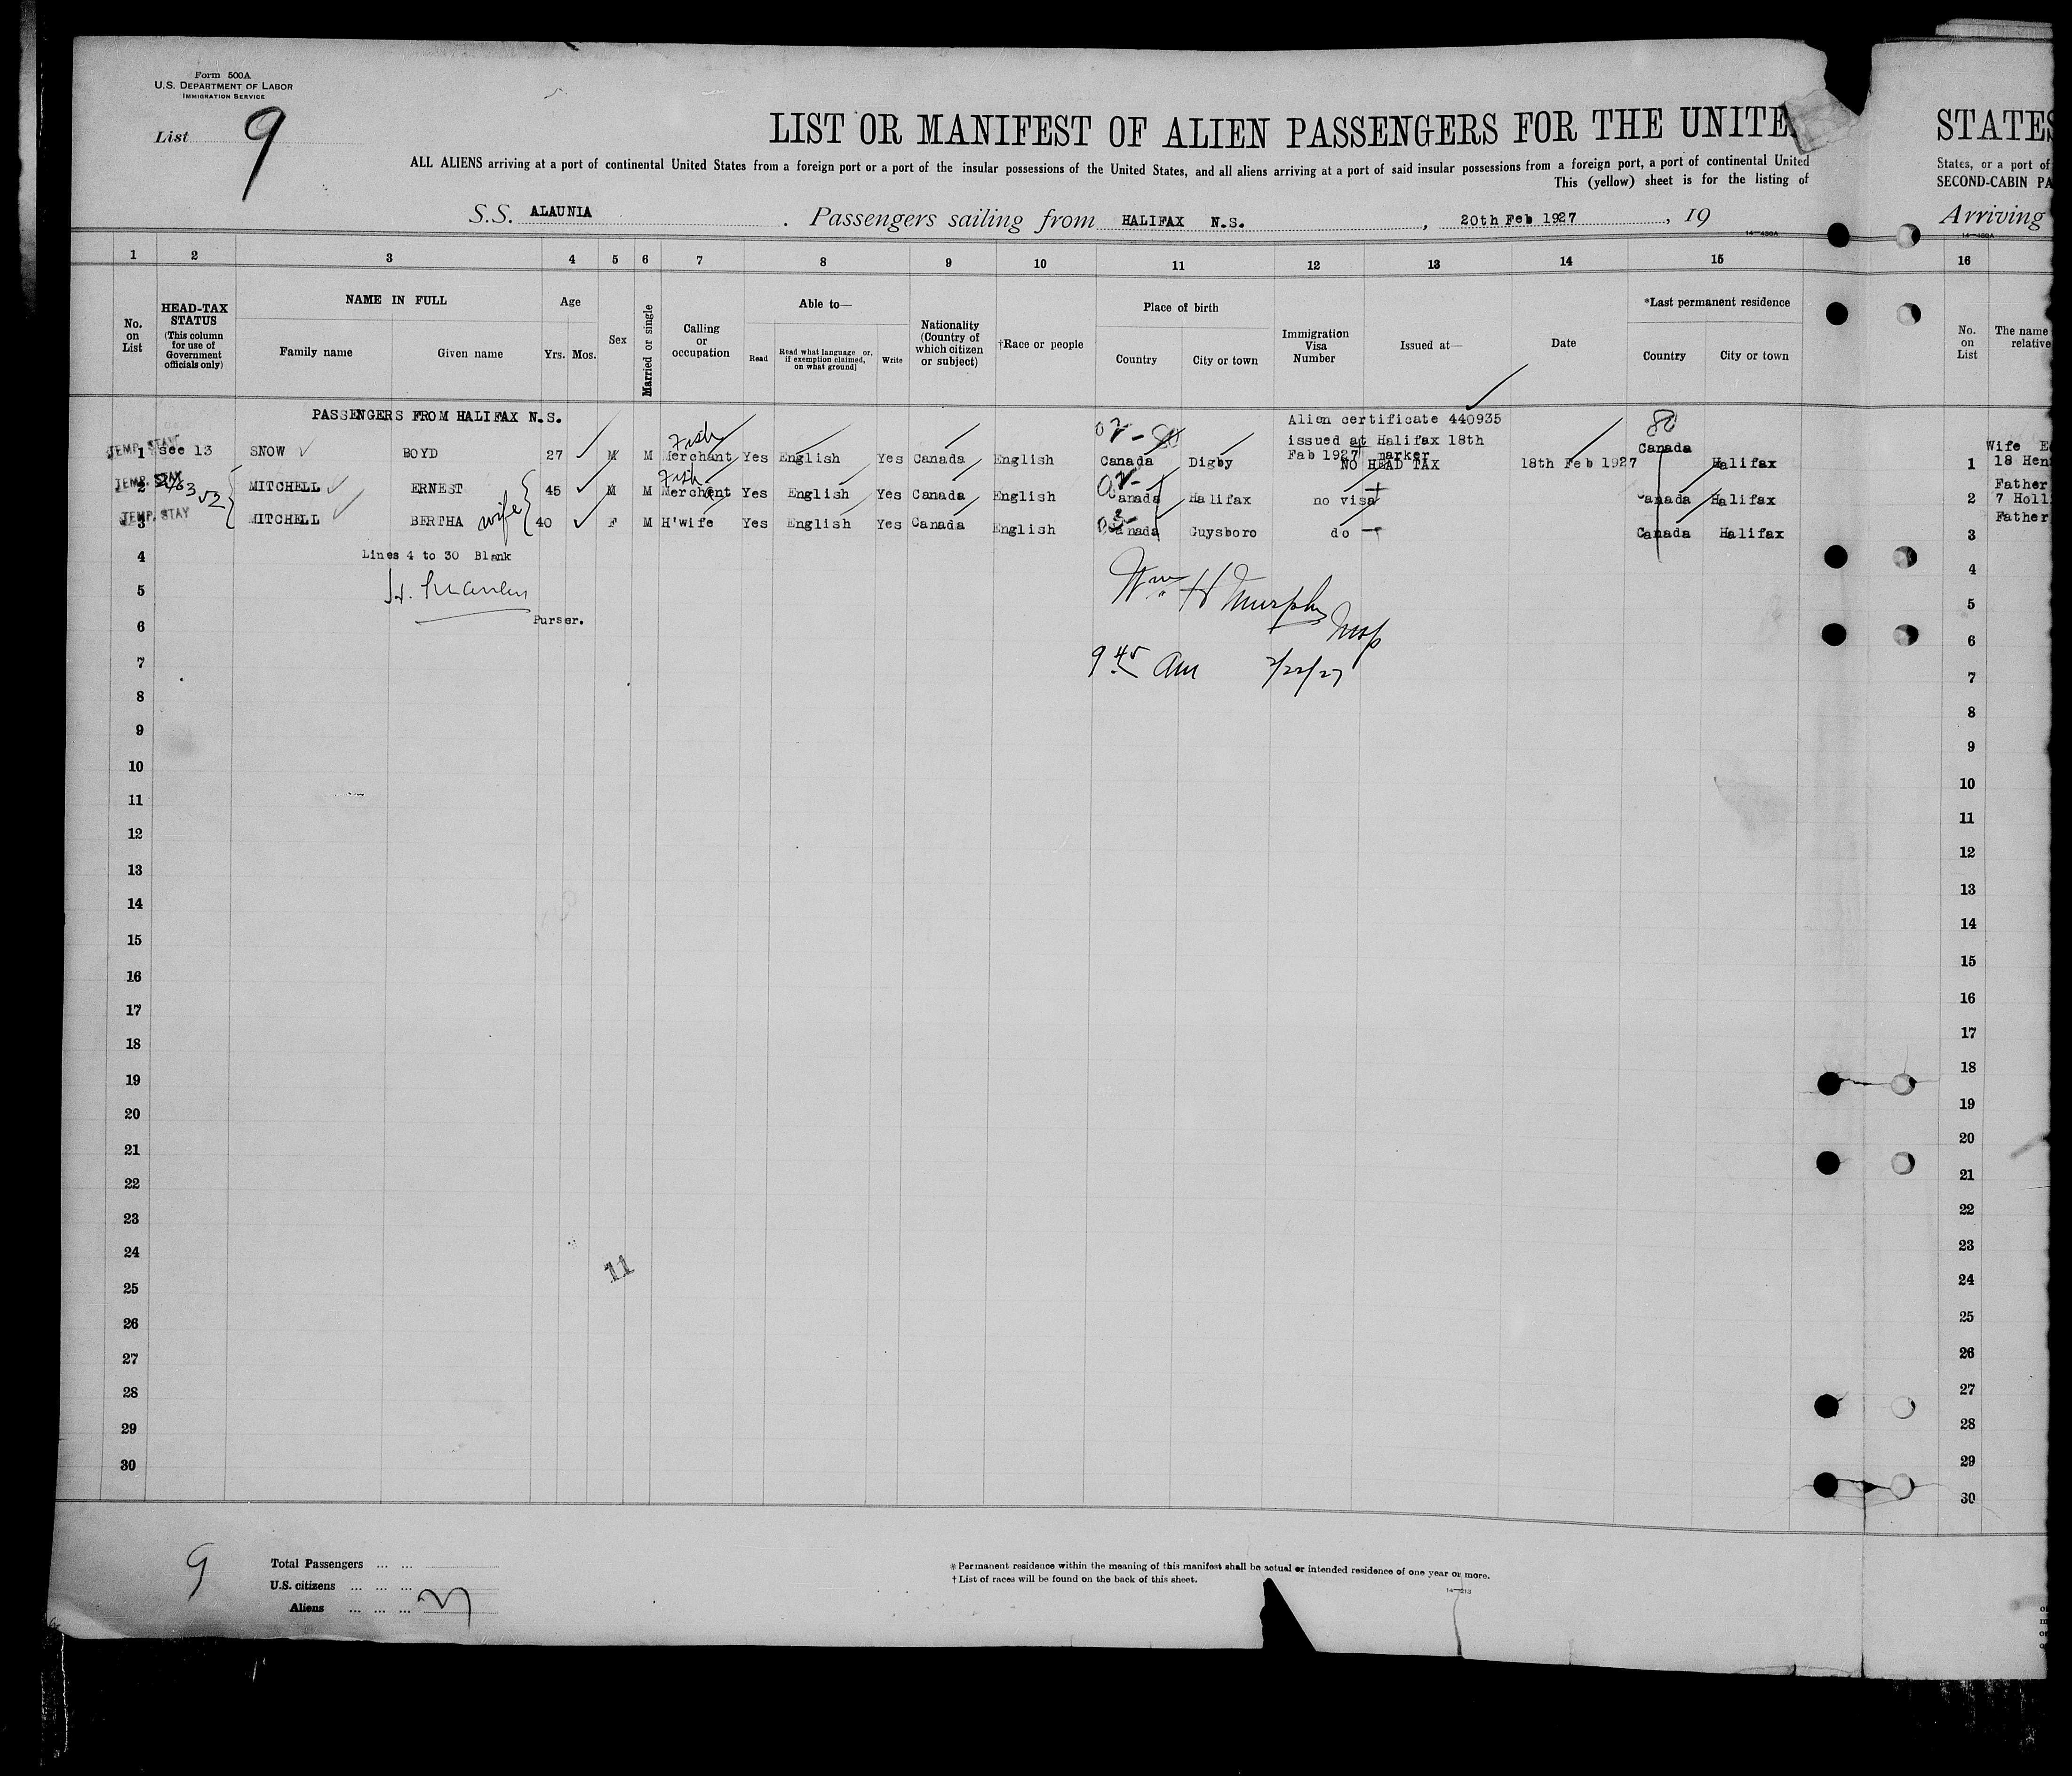 Form 500A
U.S. DEPARTMENT OF LABOR
IMMIGRATION SERVICE
List 9
LIST OR MANIFEST OF ALIEN PASSENGERS FOR THE UNITE STATES
ALL ALIENS arriving at a port of continental United States from a foreign port or a port of the insular possessions of the United States, and all aliens arriving at a port of said insular possessions from a foreign port, a port of continental United States, or a port of
This (yellow) sheet is for the listing of SECOND-CABIN PA
S.S. ALAUNIA . Passengers sailing from HALIFAX N.S. , 20th Feb 1927 , 19 Arriving
14—480A 14—480A
1 2 3 4 5 6 7 8 9 10 11 12 13 14 15 16
No. on List HEAD-TAX STATUS (This column for use of Government officials only) NAME IN FULL Family name Given name Age Yrs. Mos. Sex Married or single Calling or occupation Able to— Read Read what language or, if exemption claimed, on what ground) Write Nationality (Country of which citizen or subject) †Race or people Place of birth Country City or town Immigration Visa Number Issued at— Date *Last permanent residence Country City or town No. on List The name relative
PASSENGERS FROM HALIFAX N.S. Alien certificate 440935
issued at Halifax 18th
Feb 1927 marker
TEMP. STAY 1 see 13 SNOW BOYD 27 M M Fish Merchant Yes English Yes Canada English 02- 80 Canada Digby NO HEAD TAX 18th Feb 1927 80 Canada Halifax 1 Wife 18 Hen
TEMP. STAY 2 MITCHELL ERNEST 45 M M Fish Merchant Yes English Yes Canada English 02- Canada Halifax no visa Canada Halifax 2 Father 7 Holl
TEMP. STAY 3 MITCHELL BERTHA wife 40 F M H'wife Yes English Yes Canada English Canada Guysboro do Canada Halifax 3 Father
4 Lines 4 to 30 Blank 4
5 Wm H Murphy 5
6 Purser. Insp 6
7 9 45 AM 2/22/27 7
8 8
9 9
10 10
11 11
12 12
13 13
14 14
15 15
16 16
17 17
18 18
19 19
20 20
21 21
22 22
23 23
24 24
11
25 25
26 26
27 27
28 28
29 29
30 30
9
Total Passengers ... ...
U.S. citizens ... ... ...
Aliens ... ... ...
*Permanent residence within the meaning of this manifest shall be actual or intended residence of one year or more.
†List of races will be found on the back of this sheet.
14—213